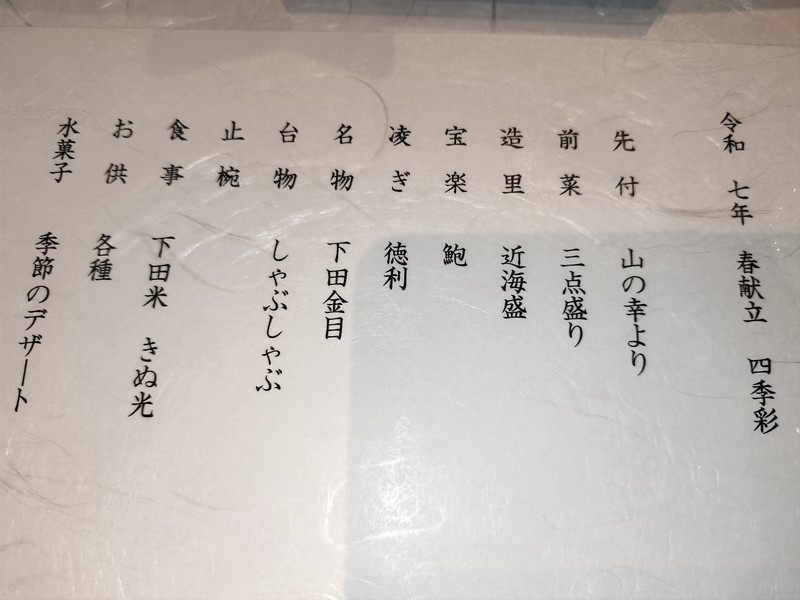 令和 七年 春献立 四季彩
先付 山の幸より
前菜 三点盛り
造里 近海盛
宝楽 鮑
凌ぎ 徳利
名物 下田金目
台物 しゃぶしゃぶ
止椀
食事 下田米 きぬ光
お供 各種
水菓子 季節のデザート